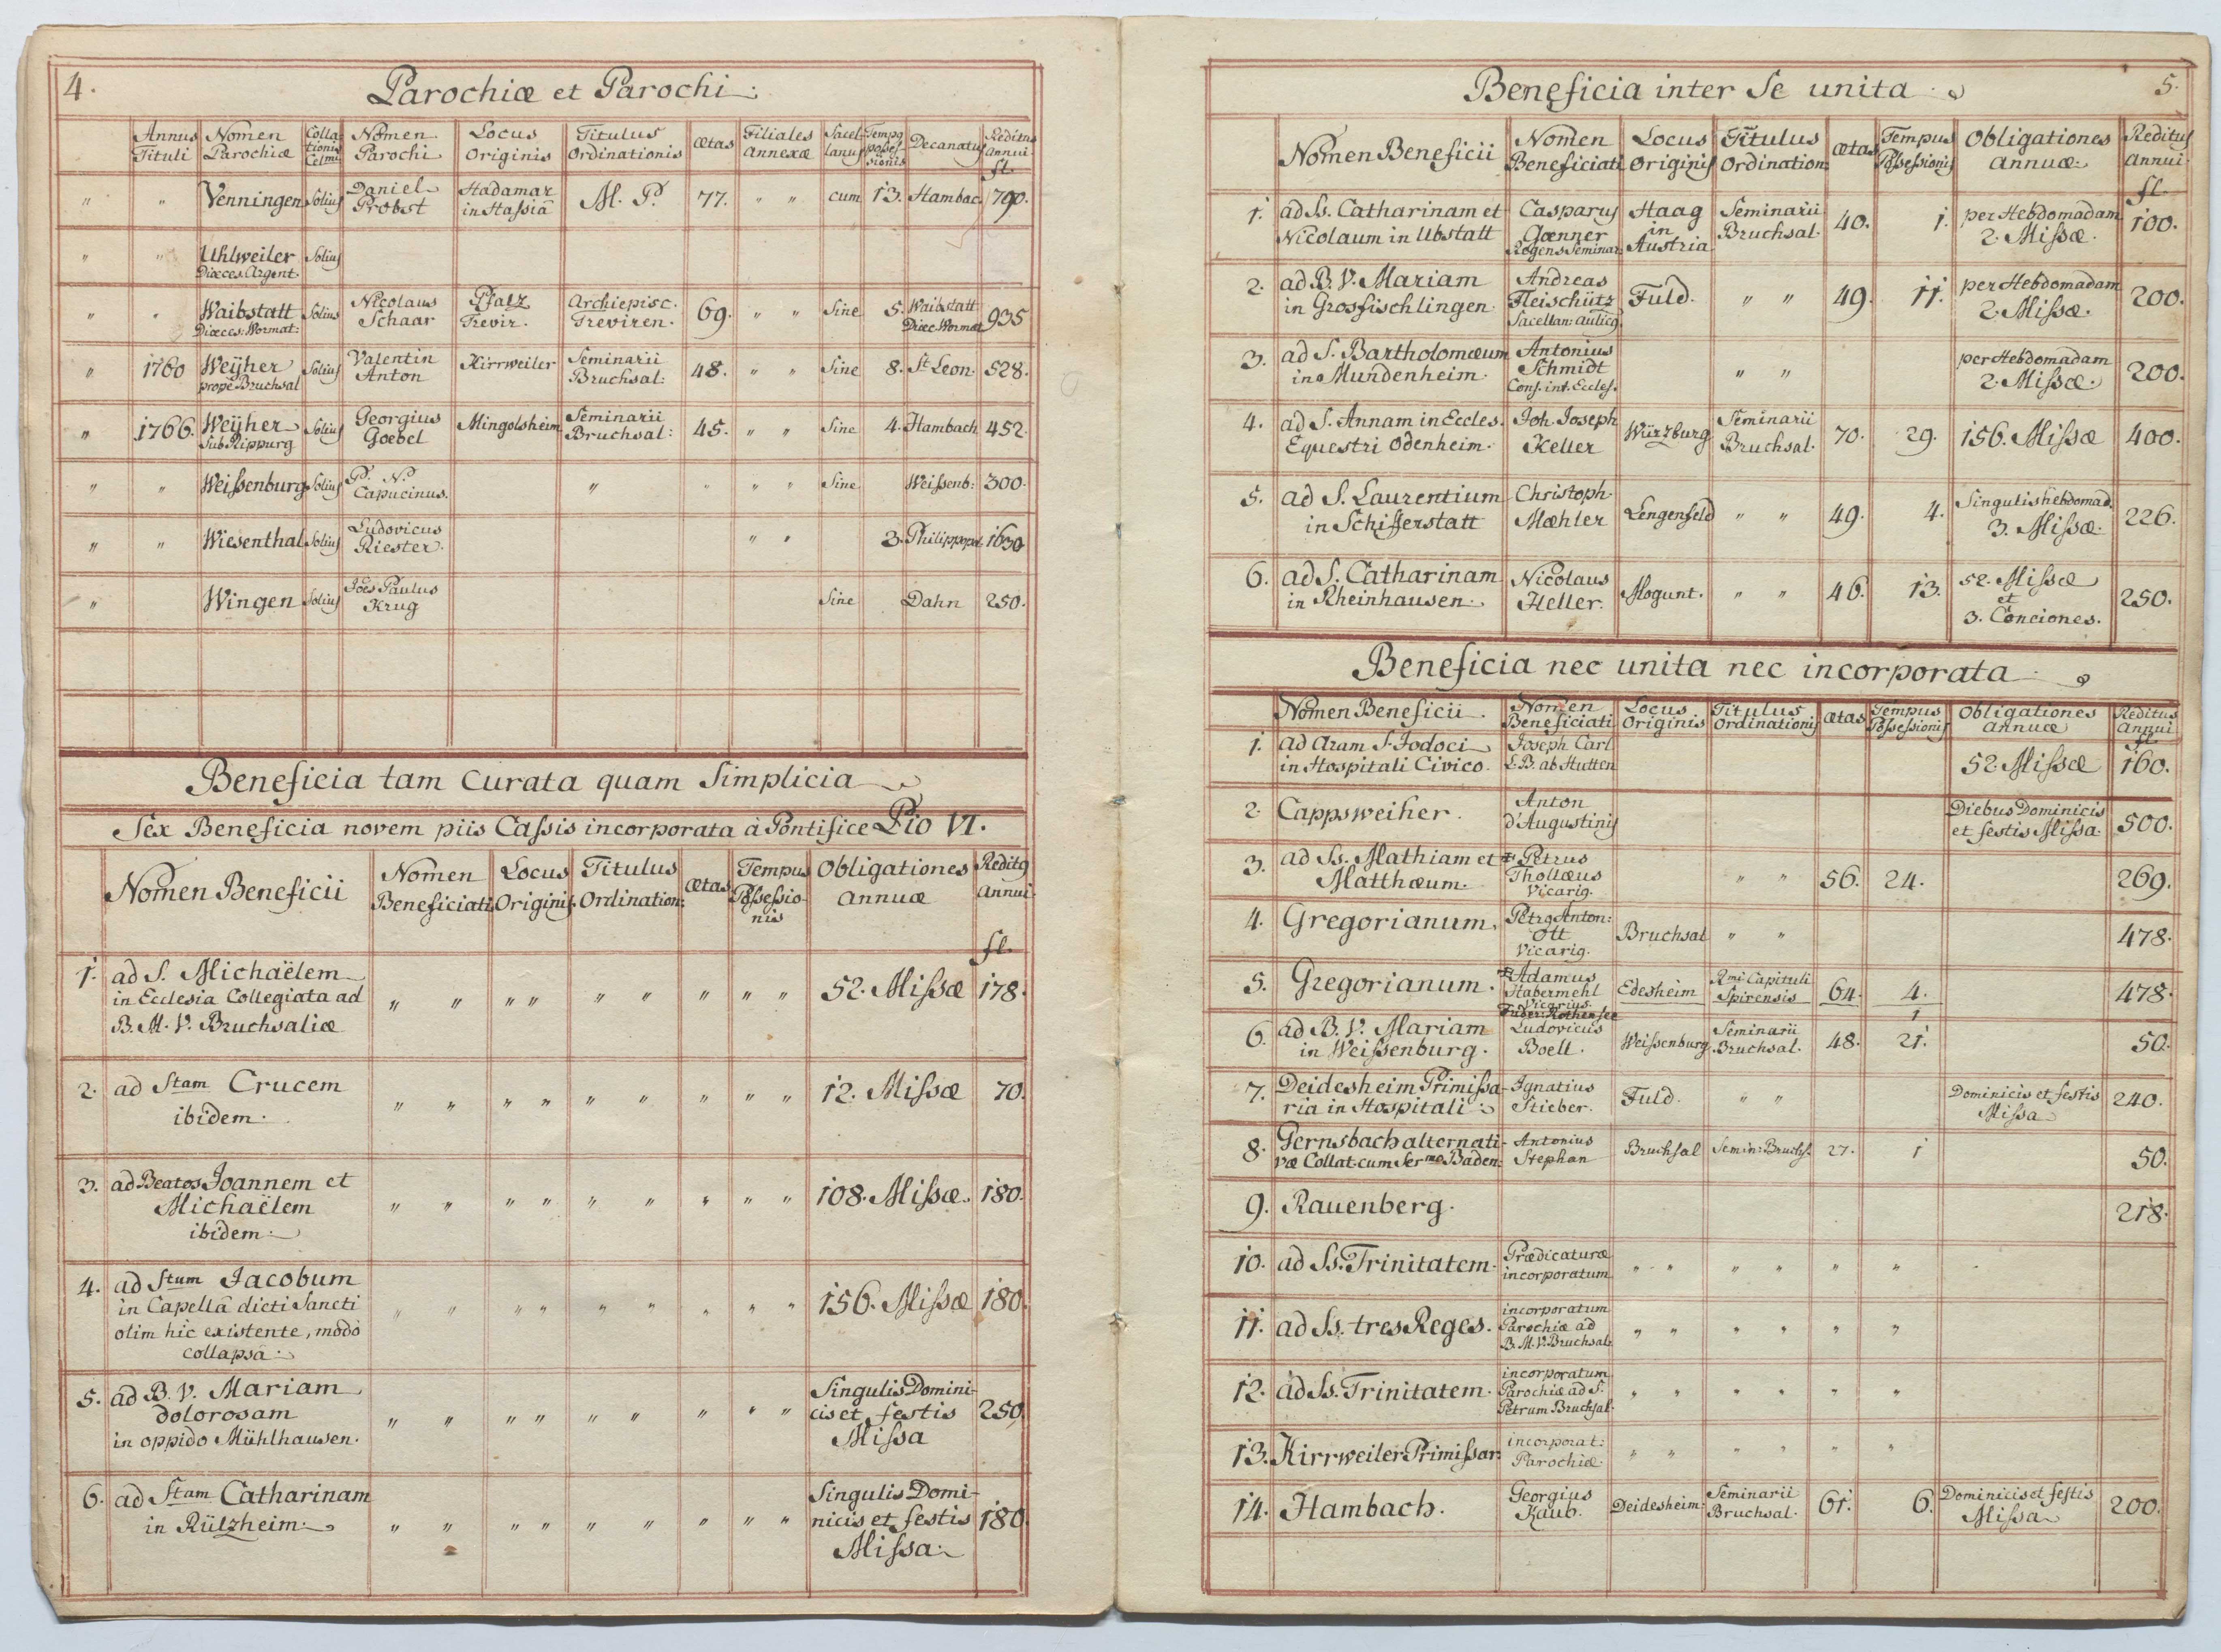 4.
Parochiæ et Parochi.
Annus Tituli | Nomen Parochiæ | Collationis Celmi | Nomen Parochi | Locus Originis | Titulus Ordinationis | Ætas | Filiales Annexæ | Sacellanus | Tempq possessionis | Decanatus | Reditus Annui fl.
" | " | Venningen | Solius | Daniel Probst | Hadamar in Hassiâ | M. P. | 77. | " " | cum | 13. | Hambac. | 790.
" | " | Uhlweiler Diœces. Argent. | Solius
" | " | Waibstatt Diœces: Wormat: | Solius | Nicolaus Schaar | Pfalz Trevir. | Archiepisc. Treviren. | 69. | " " | Sine | 5. | Waibstatt Diœc Wormat | 935
" | 1760 | Weÿher prope Bruchsal | Solius | Valentin Anton | Kirrweiler | Seminarii Bruchsal: | 48. | " " | Sine | 8. | St Leon. | 528.
" | 1766. | Weÿher sub Rippurg | Solius | Georgius Goebel | Mingolsheim | Seminarii Bruchsal: | 45. | " " | Sine | 4. | Hambach | 452.
" | " | Weissenburg | Solius | P. N. Capucinus. | " | " | " " | Sine | Weissenb: | 300.
" | " | Wiesenthal | Solius | Ludovicus Riester. | " " | 3. | Philippopol. | 1630
" | Wingen | Solius | Joēs Paulus Krug | Sine | Dahn | 250.
Beneficia tam Curata quam Simplicia
Sex Beneficia novem piis Cassis incorporata à Pontifice Pio VI.
Nomen Beneficii | Nomen Beneficiati | Locus Originis. | Titulus Ordination: | Ætas | Tempus Possessionis | Obligationes Annuæ | Reditq Annui fl.
1. ad S. Michaëlem
in Ecclesia Collegiata ad | " " | " " | " " | " | " " | 52. Missæ | 178.
B. M. V. Bruchsaliæ
2. ad Stam Crucem
ibidem. | " " | " " | " " | " | " " | 12. Missæ | 70.
3. ad Beatos Joannem et
Michaëlem | " " | " " | " " | " | " " | 108. Missæ. | 180.
ibidem.
4. ad Stum Jacobum
in Capellâ dicti Sancti | " " | " " | " " | " | " " | 156. Missæ | 180.
olim hîc existente, modò
collapsâ.
5. ad B. V. Mariam
dolorosam | " " | " " | " " | " | " " | Singulis Dominicis et festis Missa | 250.
in oppido Mühlhausen.
6. ad Stam Catharinam
in Rülzheim. | " " | " " | " " | " | " " | Singulis Dominicis et festis Missa. | 180.
5.
Beneficia inter Se unita.
Nomen Beneficii | Nomen Beneficiati | Locus Originis | Titulus Ordination: | Ætas | Tempus Possessionis | Obligationes Annuæ | Reditus Annui fl.
1. ad Ss. Catharinam et Nicolaum in Ubstatt | Casparus Gœnner Regens Seminar. | Haag in Austria | Seminarii Bruchsal. | 40. | 1. | per Hebdomadam 2. Missæ. | 100.
2. ad B. V. Mariam in Grosfischlingen. | Andreas Fleischütz Sacellan: aulicq | Fuld. | " " | 49. | 11. | per Hebdomadam 2. Missæ. | 200.
3. ad S. Bartholomæum in Mundenheim. | Antonius Schmidt Cons. int. Eccles. | " " | per Hebdomadam 2. Missæ. | 200.
4. ad S. Annam in Eccles. Equestri Odenheim. | Joh. Joseph Keller | Würzburg | Seminarii Bruchsal. | 70. | 29. | 156. Missæ | 400.
5. ad S. Laurentium in Schifferstatt | Christoph. Mæhler | Lengenfeld | " " | 49. | 4. | Singulis hebdomad. 3. Missæ. | 226.
6. ad S. Catharinam in Rheinhausen. | Nicolaus Heller. | Mogunt. | " " | 46. | 13. | 52. Missæ et 3. Conciones. | 250.
Beneficia nec unita nec incorporata.
Nomen Beneficii. | Nomen Beneficiati | Locus Originis | Titulus Ordinationis | Ætas | Tempus Possessionis | Obligationes Annuæ | Reditus Annui fl.
1. ad Aram S. Jodoci in Hospitali Civico. | Joseph Carl L. B. ab Hutten | 52. Missæ | 160.
2. Cappsweiher. | Anton d'Augustinis | Diebus Dominicis et festis Missa. | 500.
3. ad Ss. Mathiam et Matthæum. | Petrus Thollæus Vicariq. | " " | 56. | 24. | 269.
4. Gregorianum. | Petrq Anton: Ott Vicariq. | Bruchsal | " " | 478.
5. Gregorianum. | Adamus Habermehl Vicarius. | Edesheim | Rmi Capituli Spirensis | 64. | 4. | 478.
1
6. ad B. V. Mariam in Weissenburg. | Ludovicus Boell. | Weissenburg. | Seminarii Bruchsal. | 48. | 21. | 50.
7. Deidesheim Primissaria in Hospitali. | Ignatius Stieber. | Fuld. | " " | Dominicis et festis Missa | 240.
8. Gernsbach alternativæ Collat. cum Sermo Baden: | Antonius Stephan | Bruchsal | Semin: Bruchs. | 27. | 1 | 50.
9. Rauenberg. | 218.
10. ad Ss. Trinitatem. | Prædicaturæ incorporatum | " " | " " | " | "
11. ad Ss. tres Reges. | incorporatum Parochiæ ad B. M. V. Bruchsal. | " " | " " | " | "
12. ad Ss. Trinitatem. | incorporatum Parochiæ ad S. Petrum Bruchsal. | " " | " " | " | "
13. Kirrweiler Primissar: | incorporat: Parochiæ | " " | " " | " | "
14. Hambach. | Georgius Kaub. | Deidesheim. | Seminarii Bruchsal. | 61. | 6. | Dominicis et festis Missa | 200.